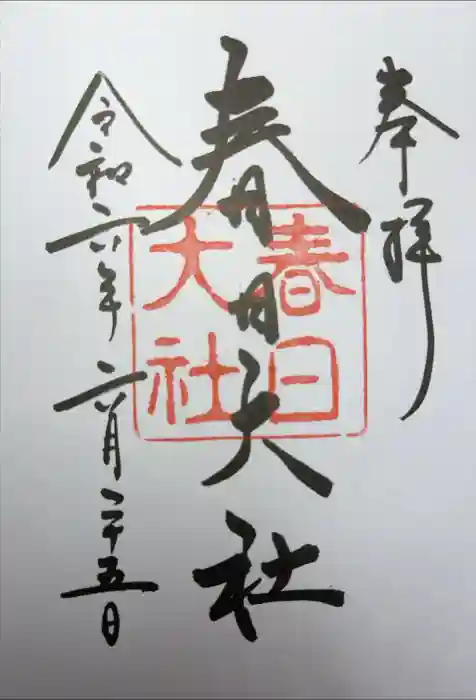 奉拝
春日大社
春日
大社
令和六年六月二十五日